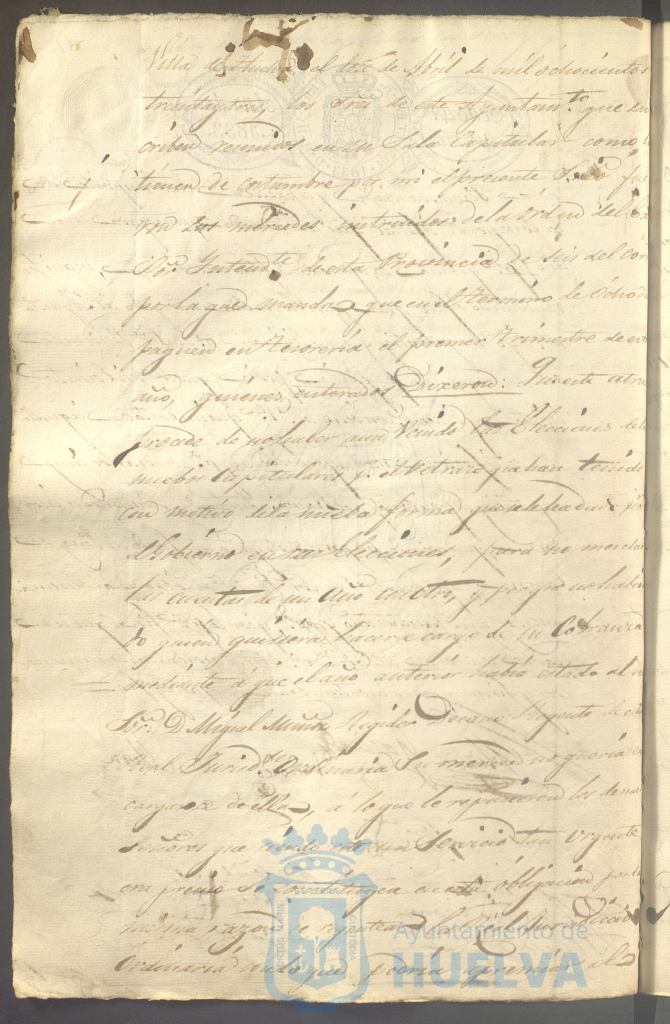 Villa de Huelva el de Abril de mil ochocientos
treintaytres, los Sres de este Ayuntamto que su
criben reunidos en su Sala Capitular como
tienen de costumbre por mi el presente Srio fue
ron sus mercedes instruidos de la órden del
Sor. Intendte de esta Provincia de seis del cor
por la que manda que en el término de ocho d
paguen en Tesorería el primer trimestre de est
año, quienes enterados Dixeron: Que este atra
procede de no haber aun venido las Elecciones de
nuebos Capitulares y el retraso que han tenido
con motivo de la nueba forma que se le ha dado p
el Gobierno en sus Elecciones, para no mezclar
las cuentas de un año con otro, y porque no habia
do quien quisiera hacerse cargo de su Cobranza
mediante á que el año anterior habia estado al
Sor. D Miguel Muñoz Regidor Decano Regente de est
Real Jurisdon Ordinaria Su merced no queria en
cargarse de ella, á lo que le repusieron los dema
Señores que siendo este un Servicio tan urgente
era preciso se constituyera en esta obligacion por la
misma razon de regentear la Jurisdiccion
Ordinaria en lo que podria apremiar á los
PORTUS MARIS
CUSTODIA
Ayuntamiento de
HUELVA